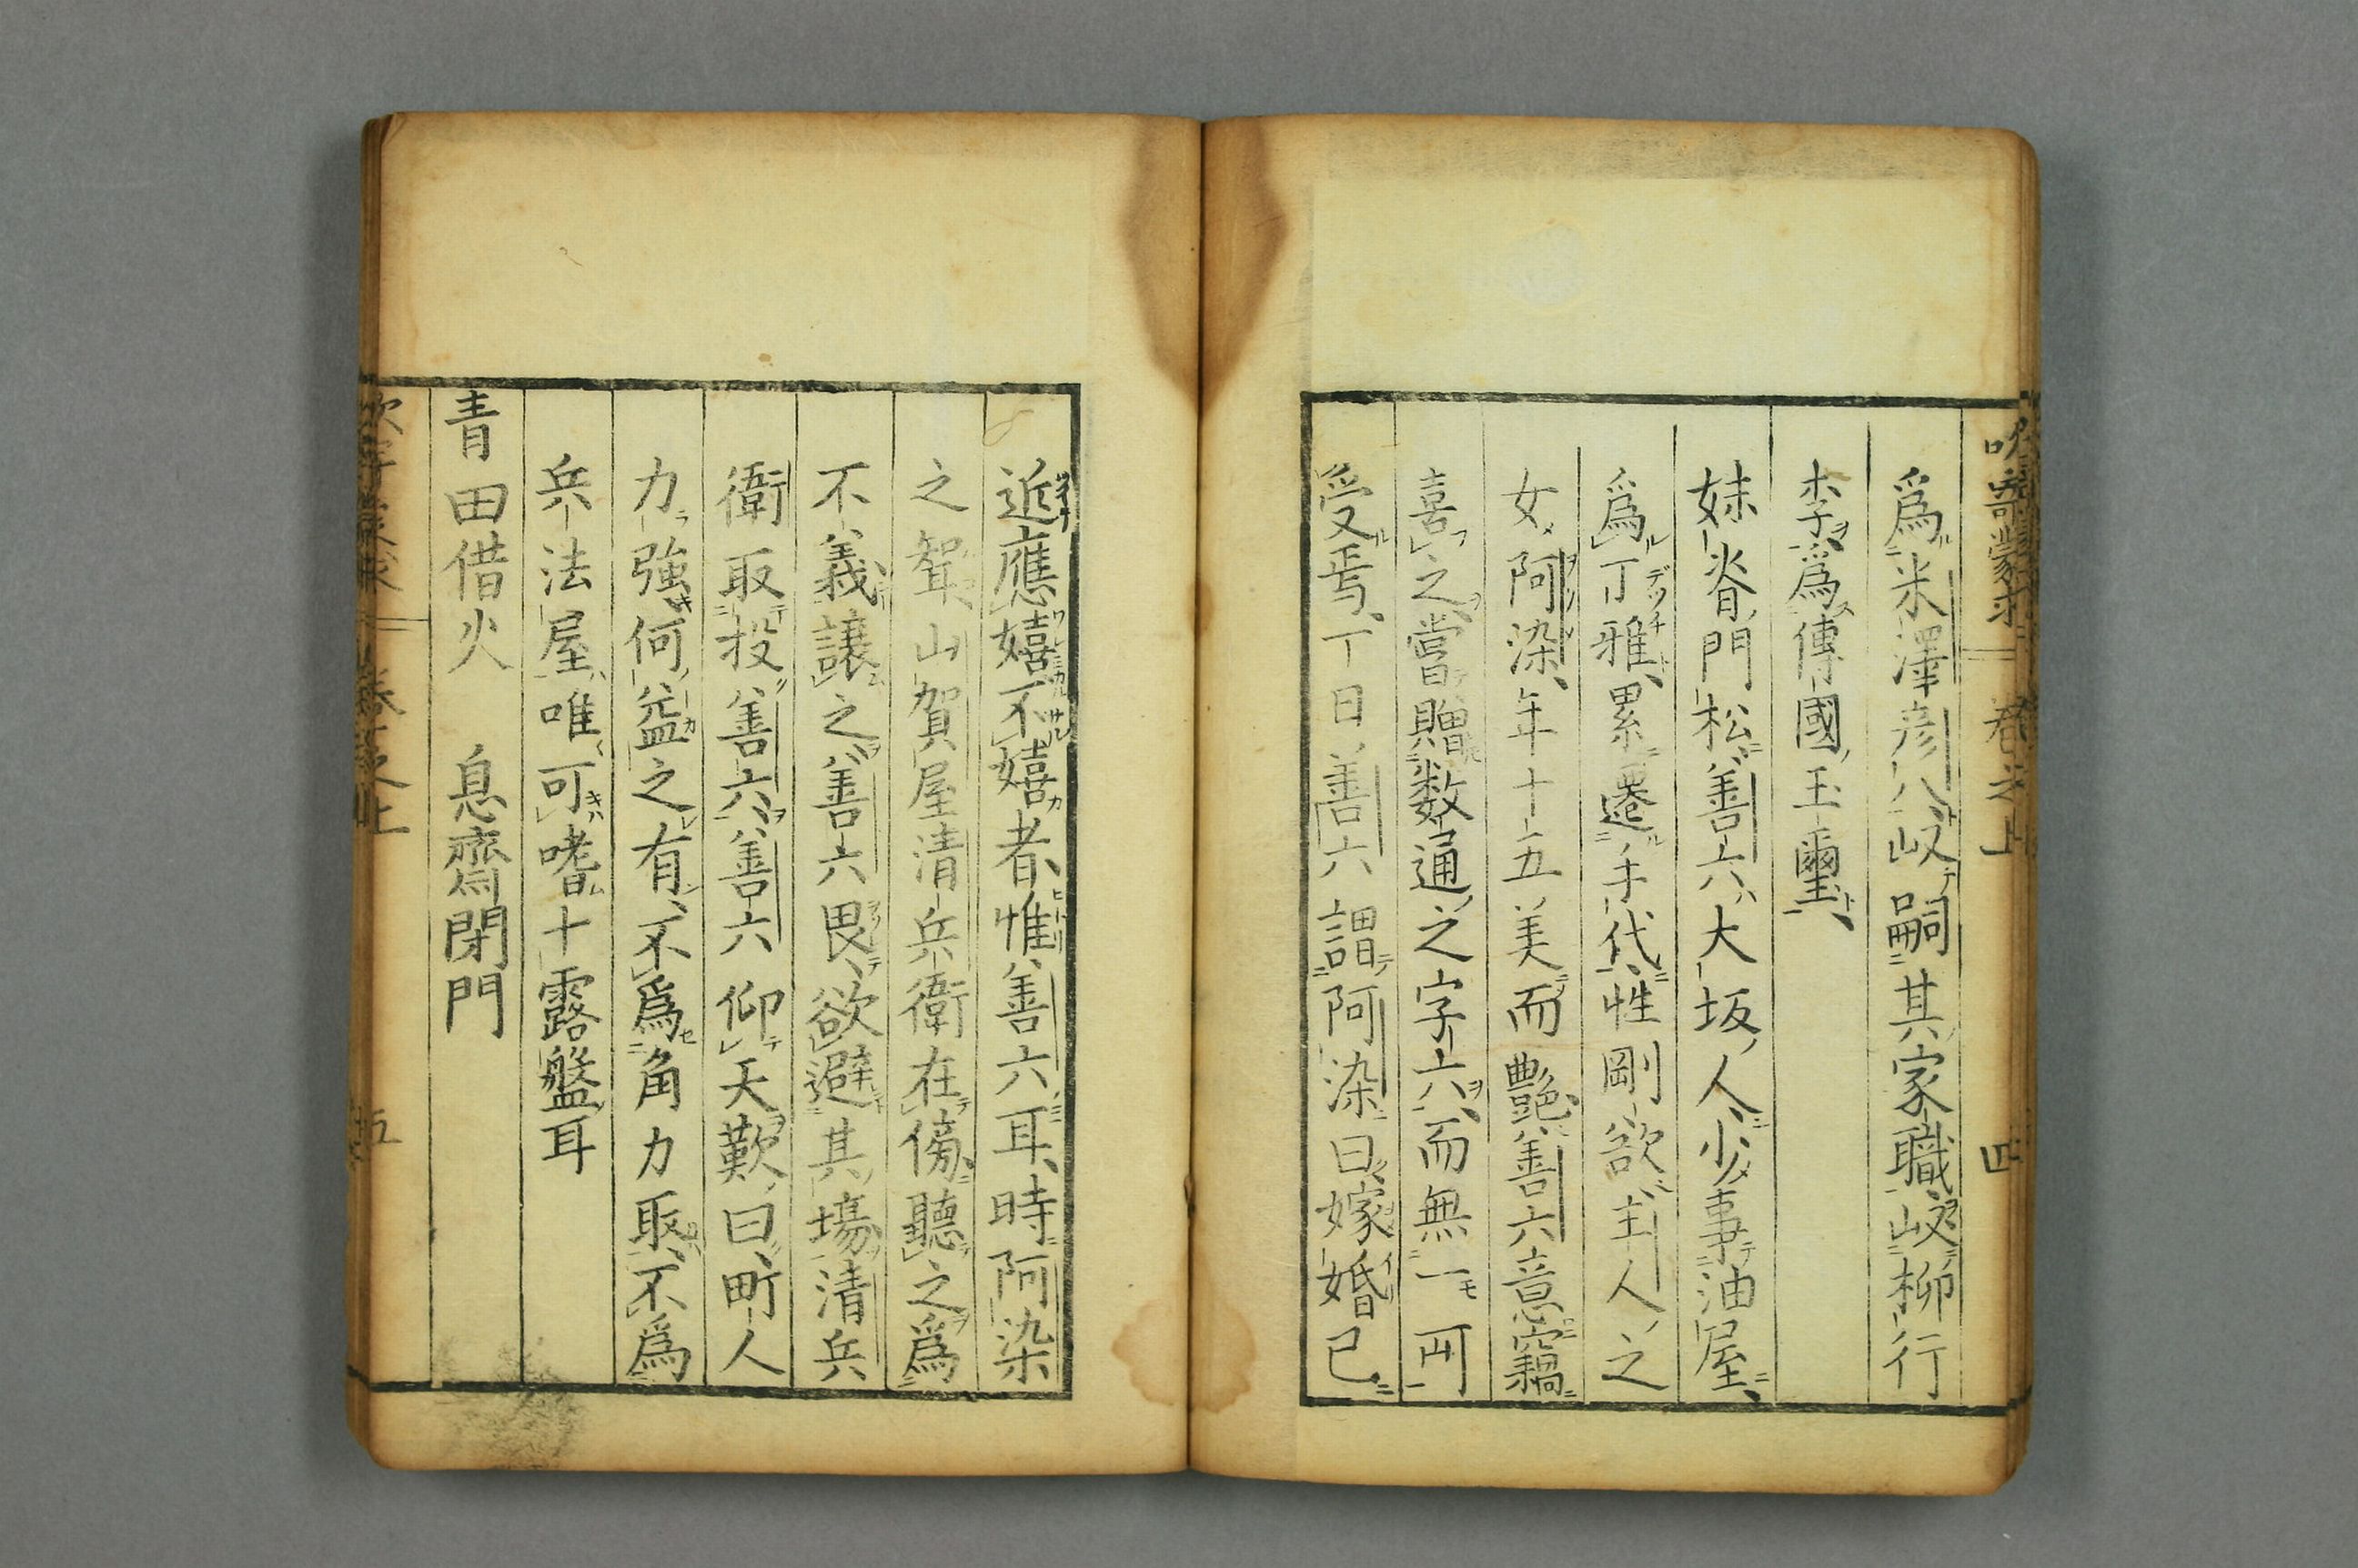 哥蒙求 卷之上 四
爲米澤彦八攱嗣其家職攱柳行
李爲傳國玉璽
妹脊門松善六大坂人少事油屋
爲丁雅累遷手代性剛欲主人之
女阿染年十五美而艶善六意竊
喜之嘗贈数通之字六而無一可
受焉丁日善六謂阿染曰嫁婚已
近應嬉不嬉者惟善六耳時阿染
之聟山賀屋清兵衛在傍聽之爲
不義譲之善六畏欲避其場清兵
衛取投善六善六仰天歎曰町人
力強何益之有不爲角力取不爲
兵法屋唯可嗜十露盤耳
青田借火 息齋閉門
卷之上 五